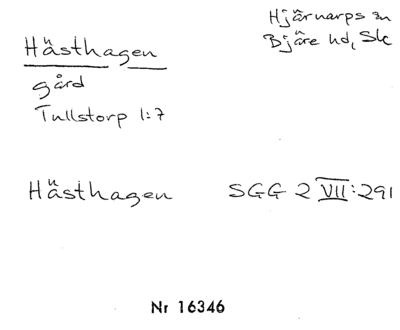 Hästhagen
Hjärnarps sn
Bjäre hd, Sk
gård
Tullstorp 1:7
Hästhagen SGG 2 VII:291
Nr 16346